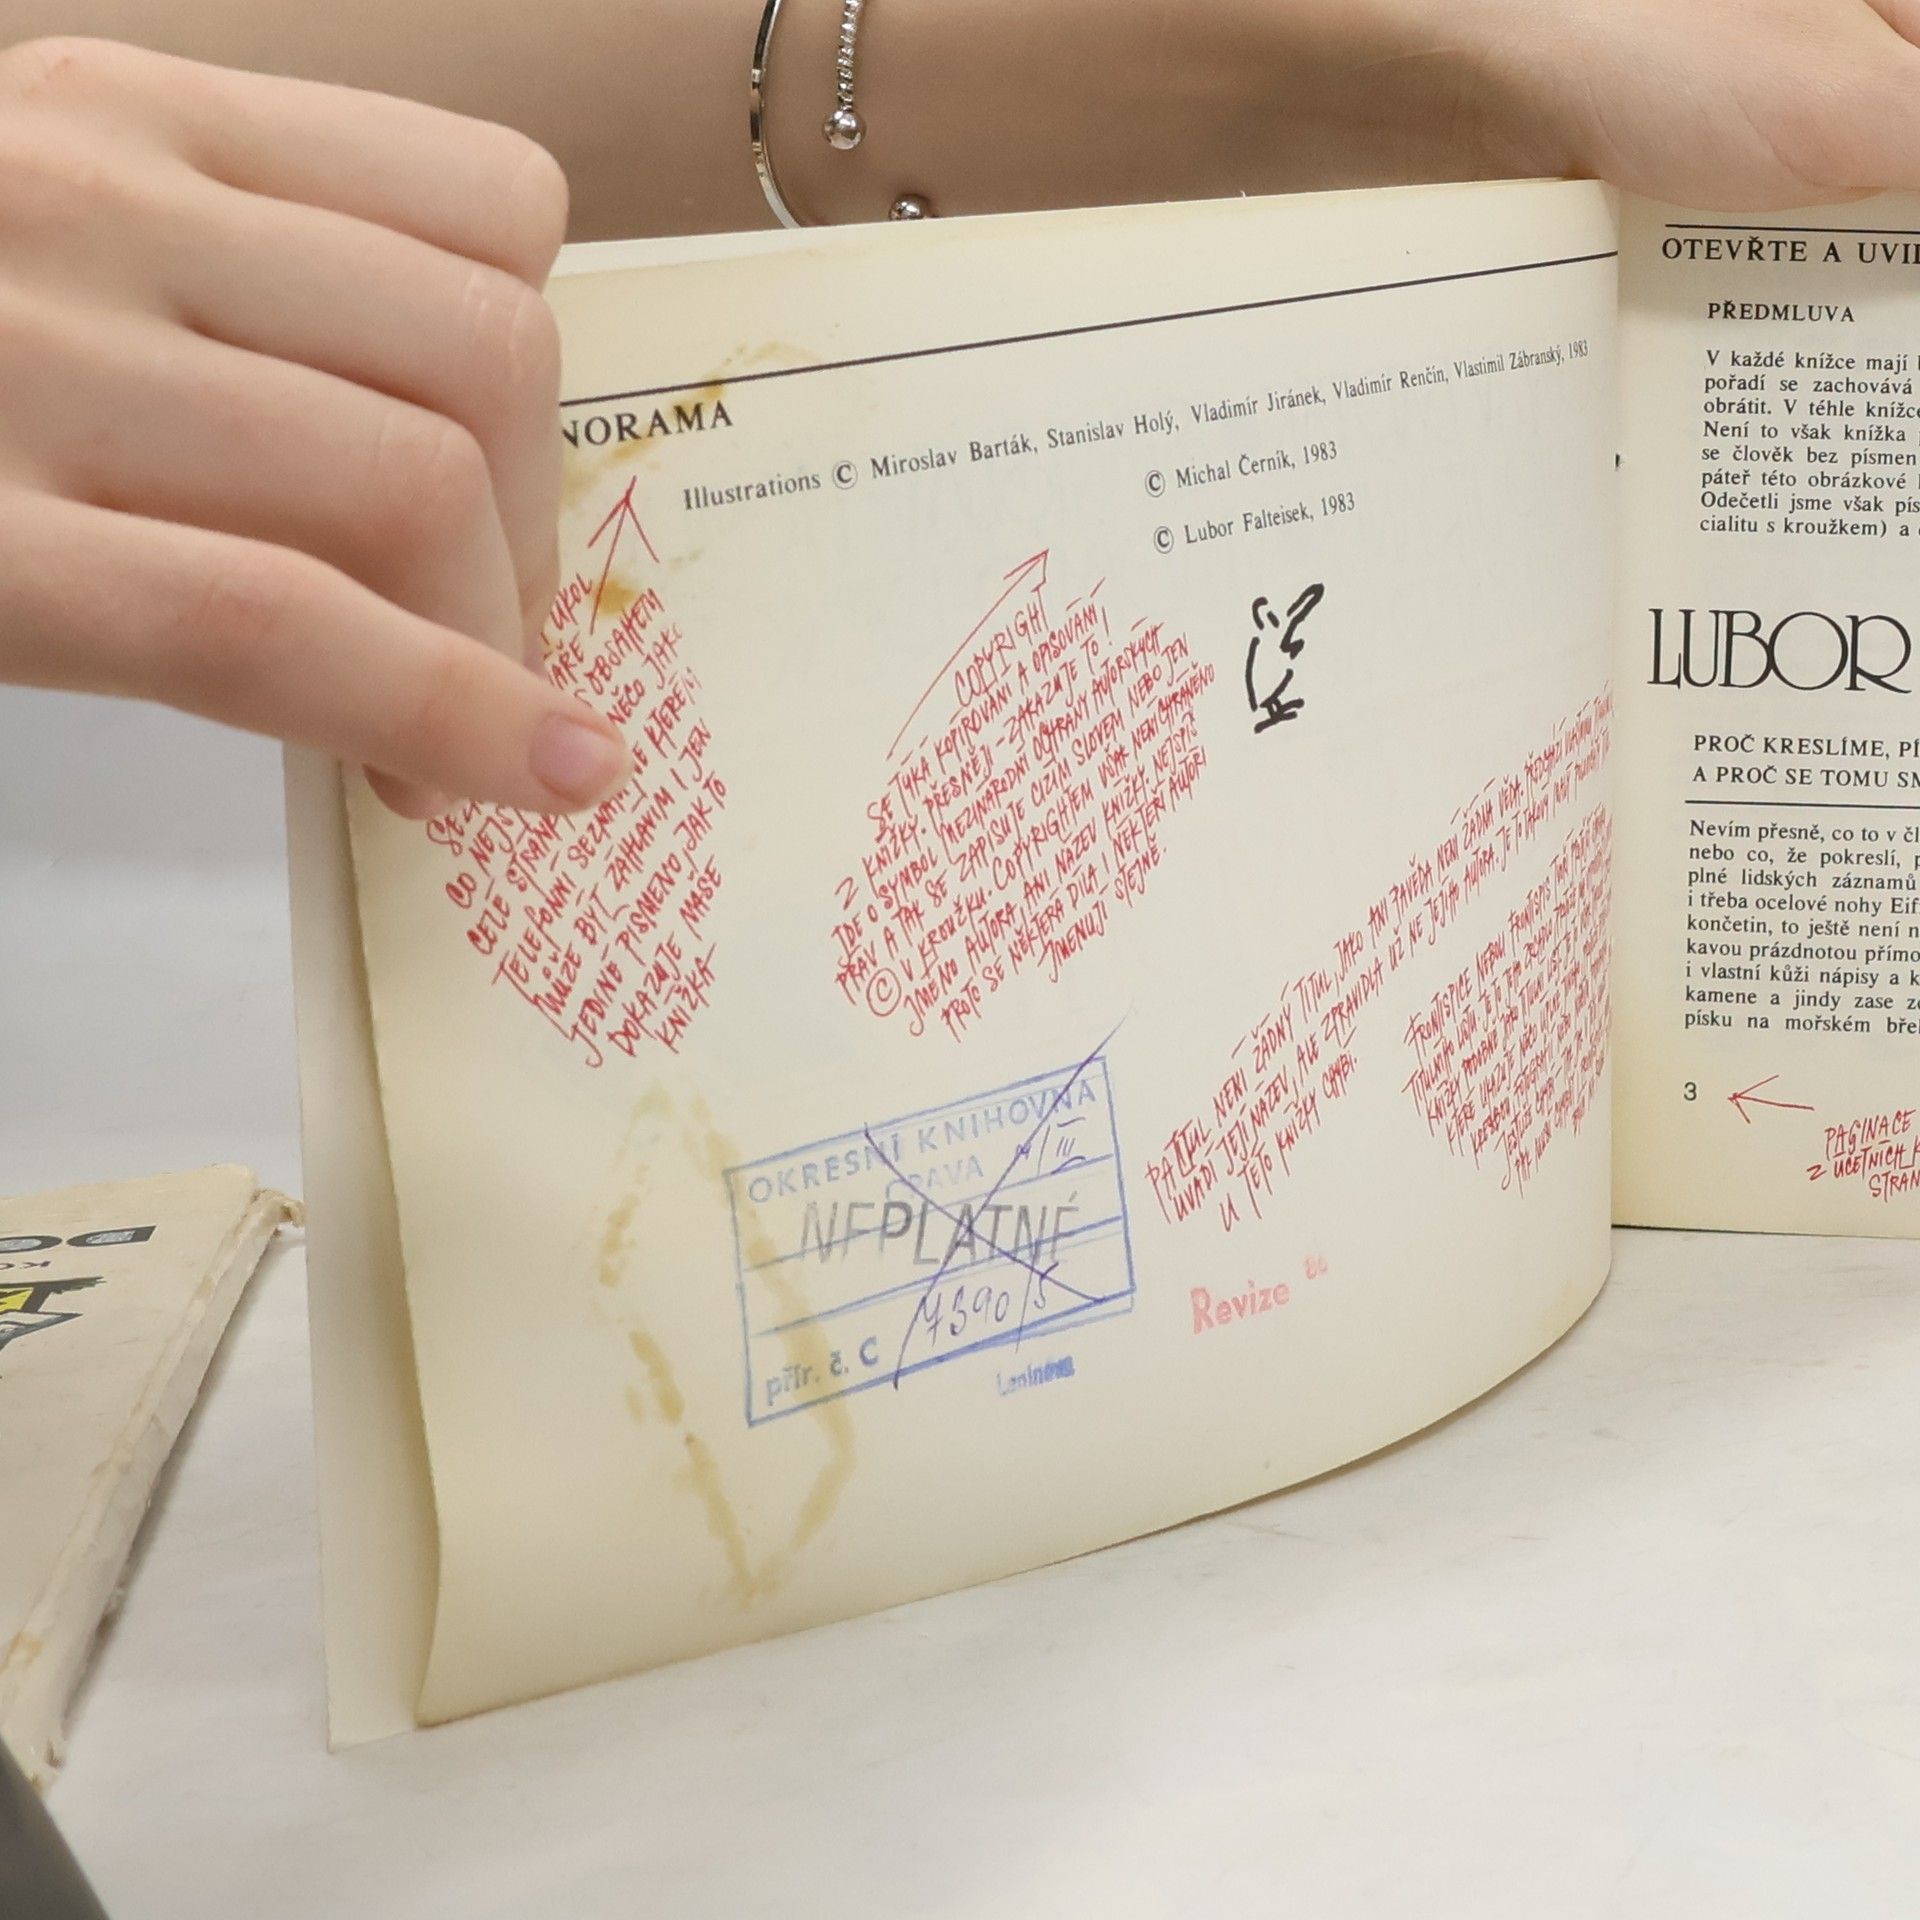 NORAMA
Illustrations © Miroslav Barták, Stanislav Holý, Vladimír Jiránek, Vladimír Renčín, Vlastimil Zábranský, 1983
© Michal Černík, 1983
© Lubor Falteisek, 1983
ÚKOL
OBSAHEM
NĚCO JAKO
CO NEJS
KTERÉ
CELÉ STRÁNK
TELEFONNÍ SEZNAM
MŮŽE BÝT ZÁHLAVÍM I JEN
JEDINÉ PÍSMENO, JAK TO
DOKAZUJE NAŠE
KNÍŽKA
COPYRIGHT
SE TÝKÁ KOPÍROVÁNÍ A OPISOVÁNÍ
Z KNÍŽKY. PŘESNĚJI - ZAKAZUJE TO!
JDE O SYMBOL MEZINÁRODNÍ OCHRANY AUTORSKÝCH
PRÁV A TAK SE ZAPISUJE CIZÍM SLOVEM NEBO JEN
© V KROUŽKU. COPYRIGHTEM VŠAK NENÍ CHRÁNĚNO
JMÉNO AUTORA, ANI NÁZEV KNÍŽKY. NEJSPÍŠ
PROTO SE NĚKTERÁ DÍLA I NĚKTEŘÍ AUTOŘI
JMENUJÍ STEJNĚ.
PATITUL NENÍ ŽÁDNÝ TITUL, JAKO ANI PAVĚDA NENÍ ŽÁDNÁ VĚDA. PŘEDCHÁZÍ VLASTNÍMU
UVÁDÍ JEJÍ NÁZEV, ALE ZPRAVIDLA UŽ NE JEJÍHO AUTORA. JE TO TAKOVÝ
U TÉTO KNÍŽKY CHYBÍ.
FRONTISPICE NEBOLI FRONTISPIS
TITULNÍHO LISTU. JE TO JEHO ZRCADLO
KNÍŽKY PODOBNĚ JAKO TITULNÍ LIST
KTERÉ UKAZUJE NĚCO
KRESBOU FOTOGRAFIÍ
JESTLIŽE CHYBÍ
OKRESNÍ KNIHOVNA
OPAVA
NEPLATNÉ
přír. č. C 7390/5
Revize 86
OTEVŘTE A UVI
PŘEDMLUVA
V každé knížce mají
pořadí se zachovává
obrátit. V téhle knížce
Není to však knížka
se člověk bez písmen
páteř této obrázkové
Odečetli jsme však pís
cialitu s kroužkem) a
LUBOR
PROČ KRESLÍME, PÍ
A PROČ SE TOMU SM
Nevím přesně, co to v čl
nebo co, že pokreslí, p
plné lidských záznamů
i třeba ocelové nohy Eif
končetin, to ještě není n
kavou prázdnotou přímo
i vlastní kůži nápisy a k
kamene a jindy zase ze
písku na mořském břeh
3
PAGINACE
Z ÚČETNÍCH K
STRAN